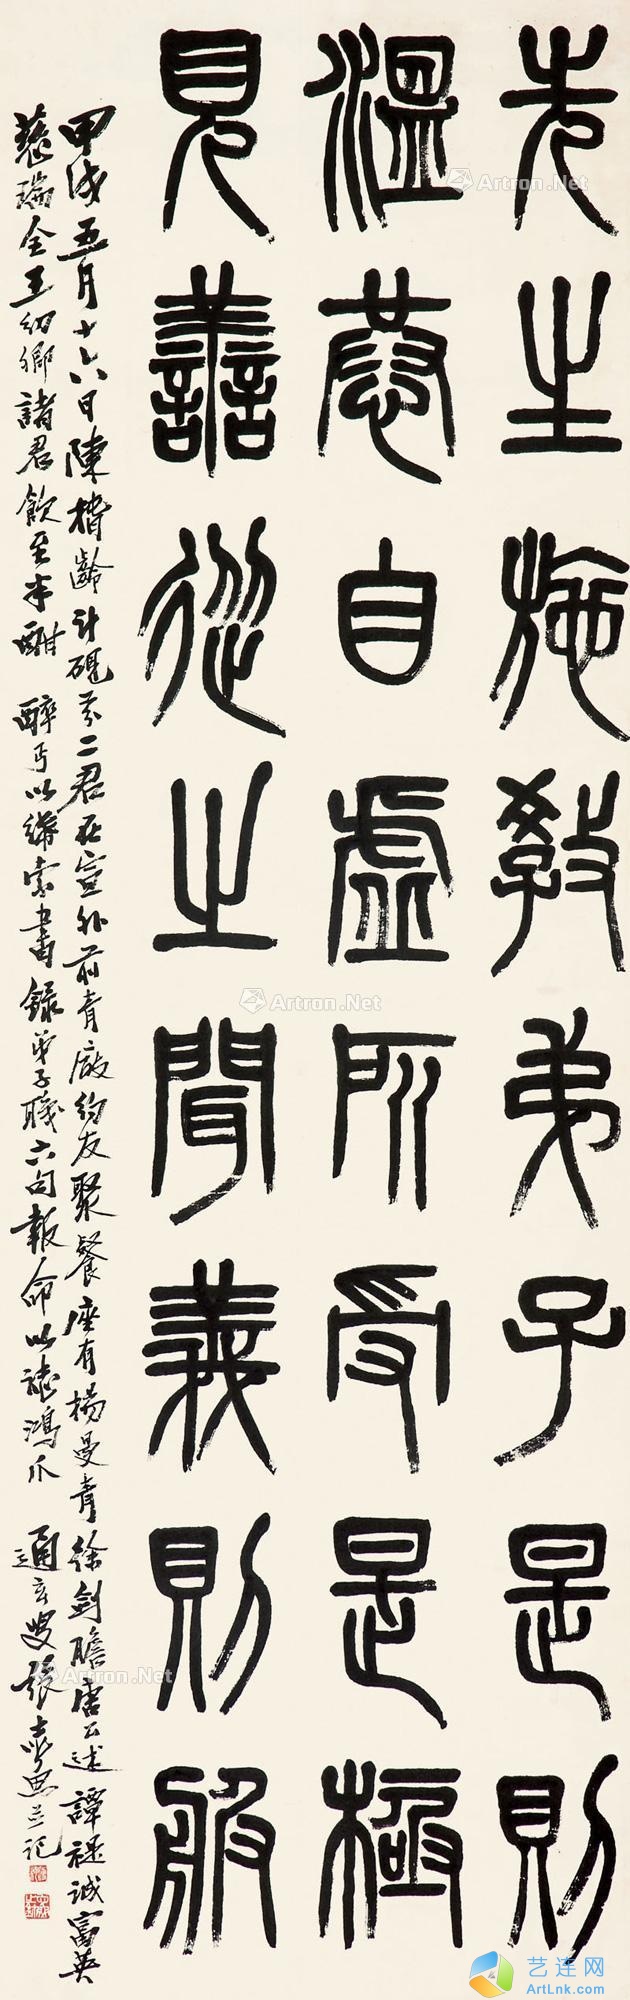 先生施教弟子是則
溫恭自虛所受是極
見譱從之聞義則服
甲戌五月十六日陳齡計硯二君在宣外前青廠約友聚餐座有楊曼青徐劍膽唐公述譚誠富英
慈瑞全王幼卿諸君飲至半酣 醉丐以縑索書錄弟子職六句報命以誌鴻爪 通玄叟張並記
Artron.Net
Artron.Net
Artron.Net
Artron.Net
艺连网
ArtLnk.com